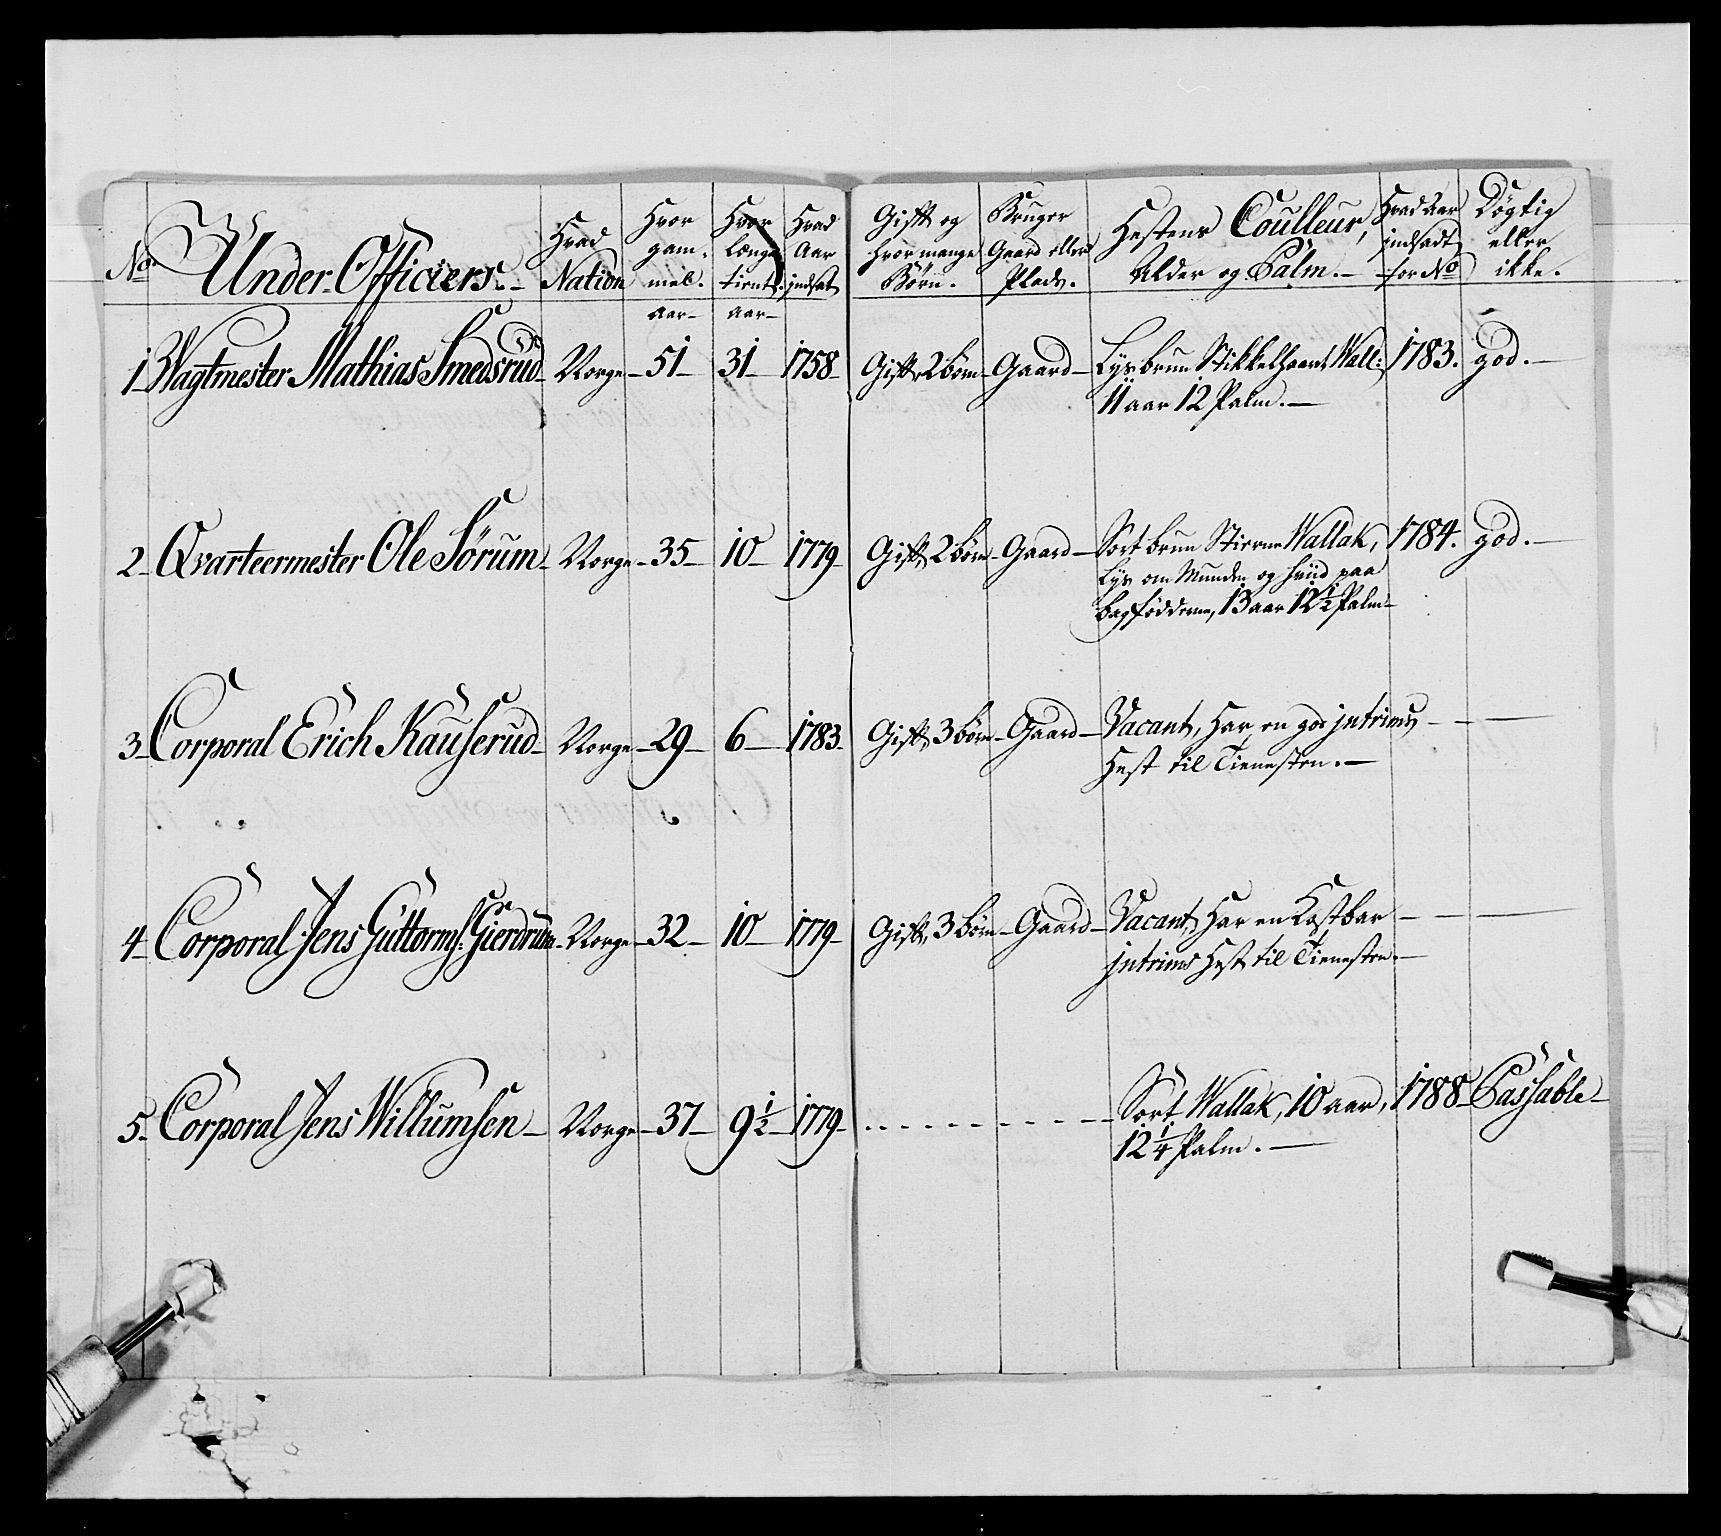 No. Under-Officiers. Hvad Nation Hvor gam- mel. Hvor længe tient. Hvad Aar indsat Gift og hvor mange Børn. Bruger Gaard eller Plads. Hestens Couleur, Alder og Palm. Hvad Aar indsadt for No Døgtig eller ikke.
aar aar
1 Wagtmester Mathias Smedsrud Norge 51 31 1758 Gift 2 børn Gaard Lysbrun Stikkelhaaret Wall: 1783. god.
11 aar 12 Palm.
2 Qvarteermester Ole Sørum Norge 35 10 1779 Gift 2 børn Gaard Sortbrun Stiernet Wallak, 1784. god.
Lys om Munden og hviid paa
bagfødderne, 13 aar 12 1/2 Palm
3 Corporal Erich Kauserud Norge 29 6 1783 Gift 3 børn Gaard Vacant, har en god intrims
Hest til Tienesten.
4 Corporal Jens Guttorms: Gierdrum Norge 32 10 1779 Gift, 3 børn Gaard Vacant, har en Kostbar
intrims Hest til Tienesten.
5 Corporal Jens Willumsen Norge 37 9 1/2 1779 Sort Wallak, 10 aar, 1788 Passable
12 1/4 Palm.